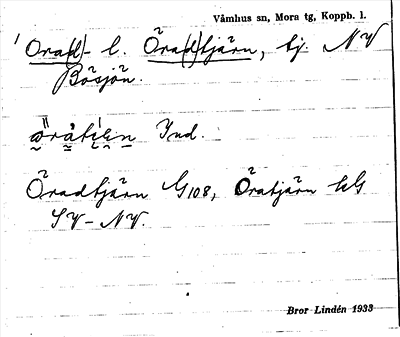 Våmhus sn, Mora tg, Koppb. l.
Ora(d)- l. Öra(d)tjärn, tj. NV
Bösjön.
Ind.
Öradtjärn G108, Öratjärn kG
SV-NV.
Bror Lindén 1933